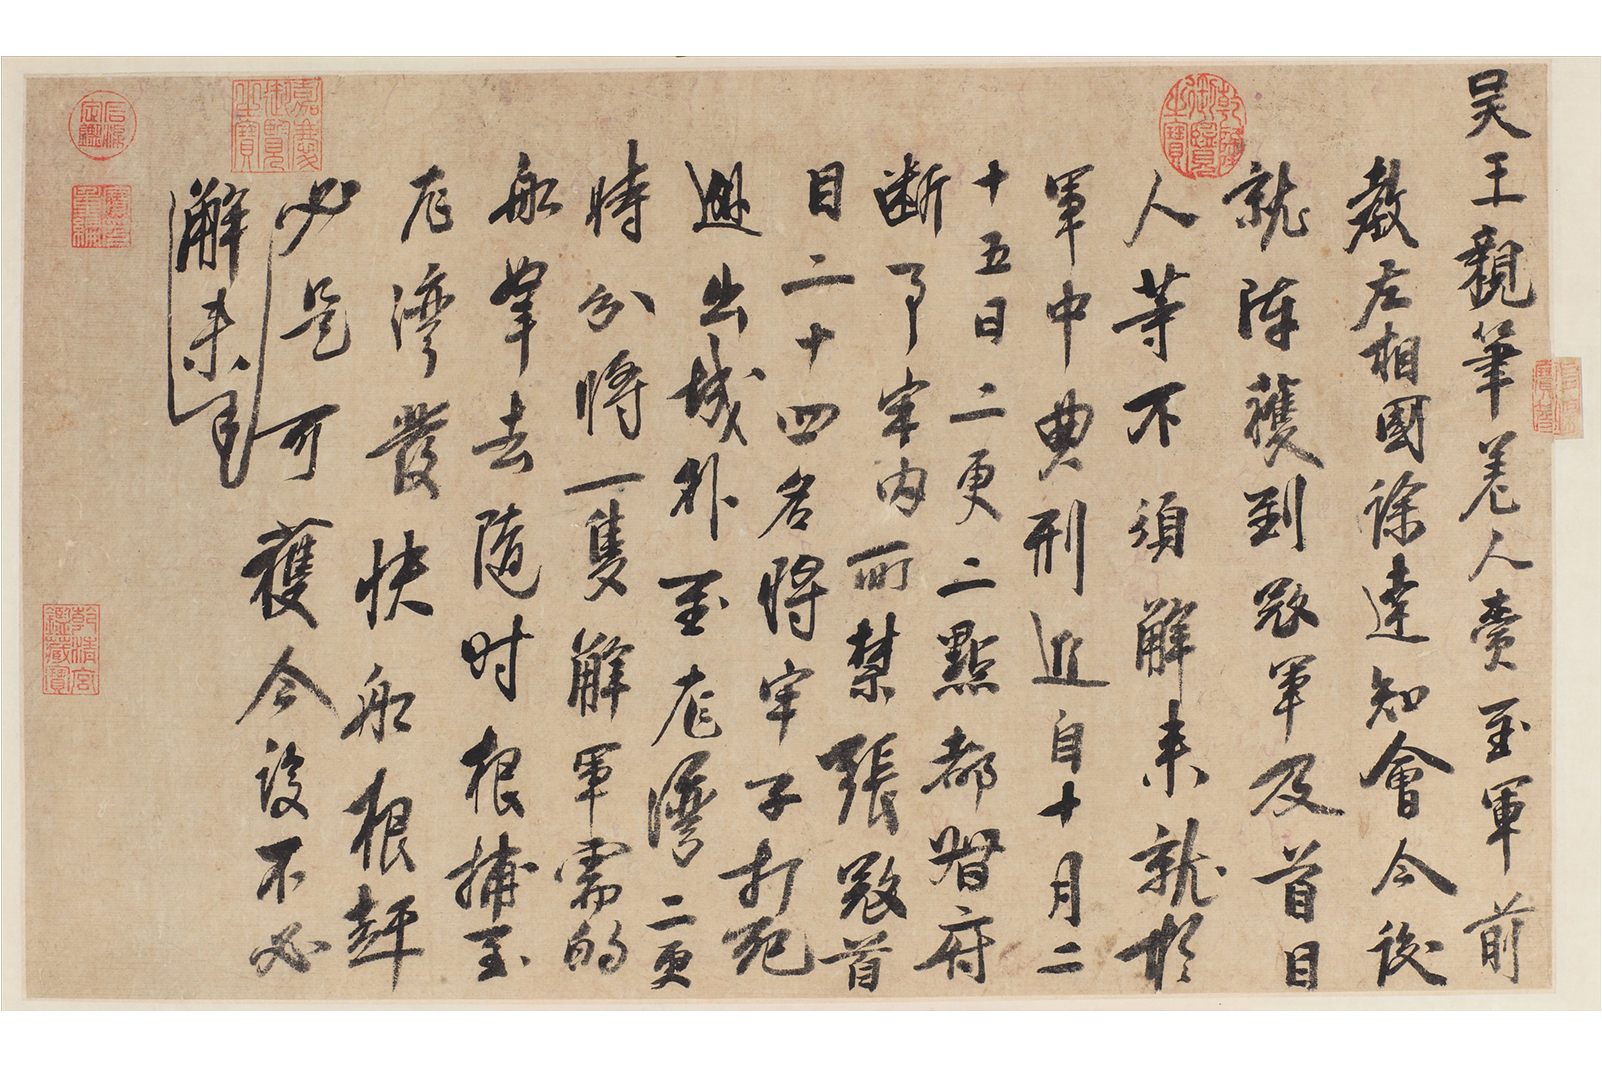 吳王親筆差人賫至軍前
教左相國徐達知會今後
就陣獲到寇軍及首目
人等不須解來就於
軍中典刑近自十月二
十五日二更二點都督府
斷了牢內所禁張寇首
目二十四名將牢子打死
出城外至龙灣二更
時分將一隻解軍需的
船拏去隨时根捕至
龙灣發快船根趕
必是可獲今後不必
解來
乾隆御覽之寶
石渠寶笈
嘉慶御覽之寶
石渠定鑑
寶笈重編
乾清宮鑑藏寶